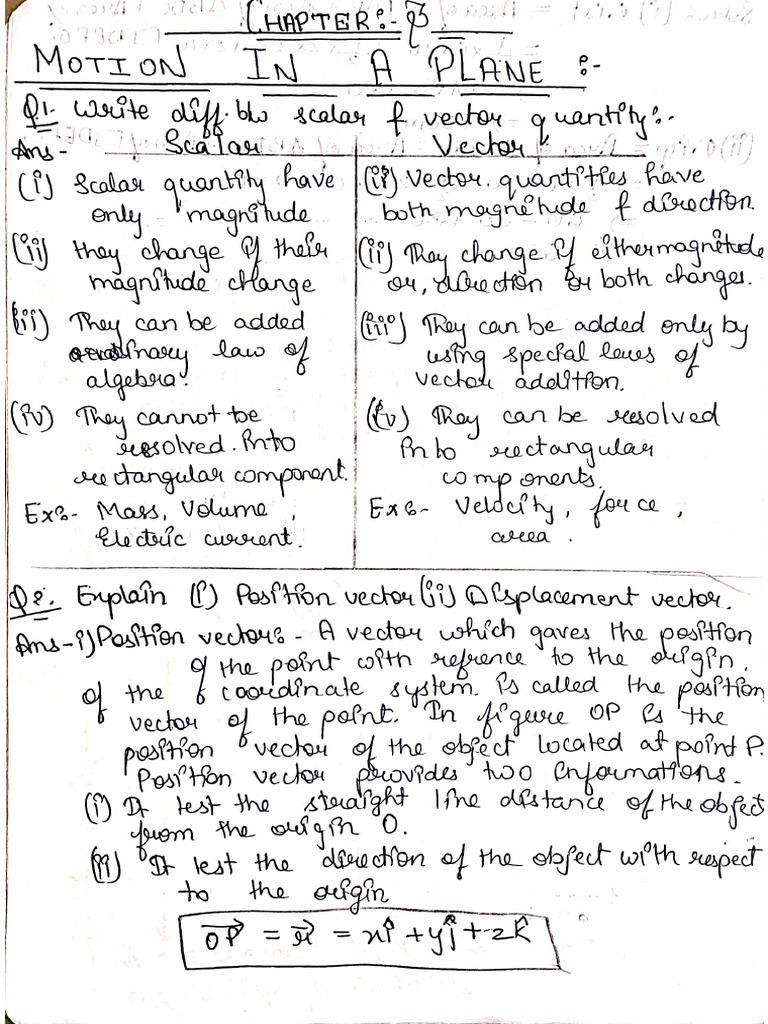 CHAPTER:- 3
MOTION IN A PLANE :-
Q1. Write diff. b/w scalar & vector quantity:-
Ans- Scalar Vector
(i) Scalar quantity have
only magnitude
(ii) they change if their
magnitude change
(iii) They can be added
ordinary law of
algebra.
(iv) They cannot be
resolved. into
rectangular component.
Ex:- Mass, Volume,
Electric current.
(ii) Vector quantities have
both magnitude & direction.
(ii) They change if either magnitude
or, direction or both changes.
(iii) They can be added only by
using special laws of
vector addition.
(iv) They can be resolved
into rectangular
components.
Ex:- Velocity, force,
area.
Q2. Explain (i) Position vector (ii) Displacement vector.
Ans- i) Position vector:- A vector which gaves the position
of the point with refrence to the origin.
of the coordinate system. is called the position
vector of the point. In figure OP is the
position vector of the object located at point P.
Position vector provides two informations.
(i) It test the straight line distance of the object
from the origin O.
(ii) It test the direction of the object with respect
to the origin
$\overrightarrow{OP} = \vec{r} = x\hat{i} + y\hat{j} + z\hat{k}$